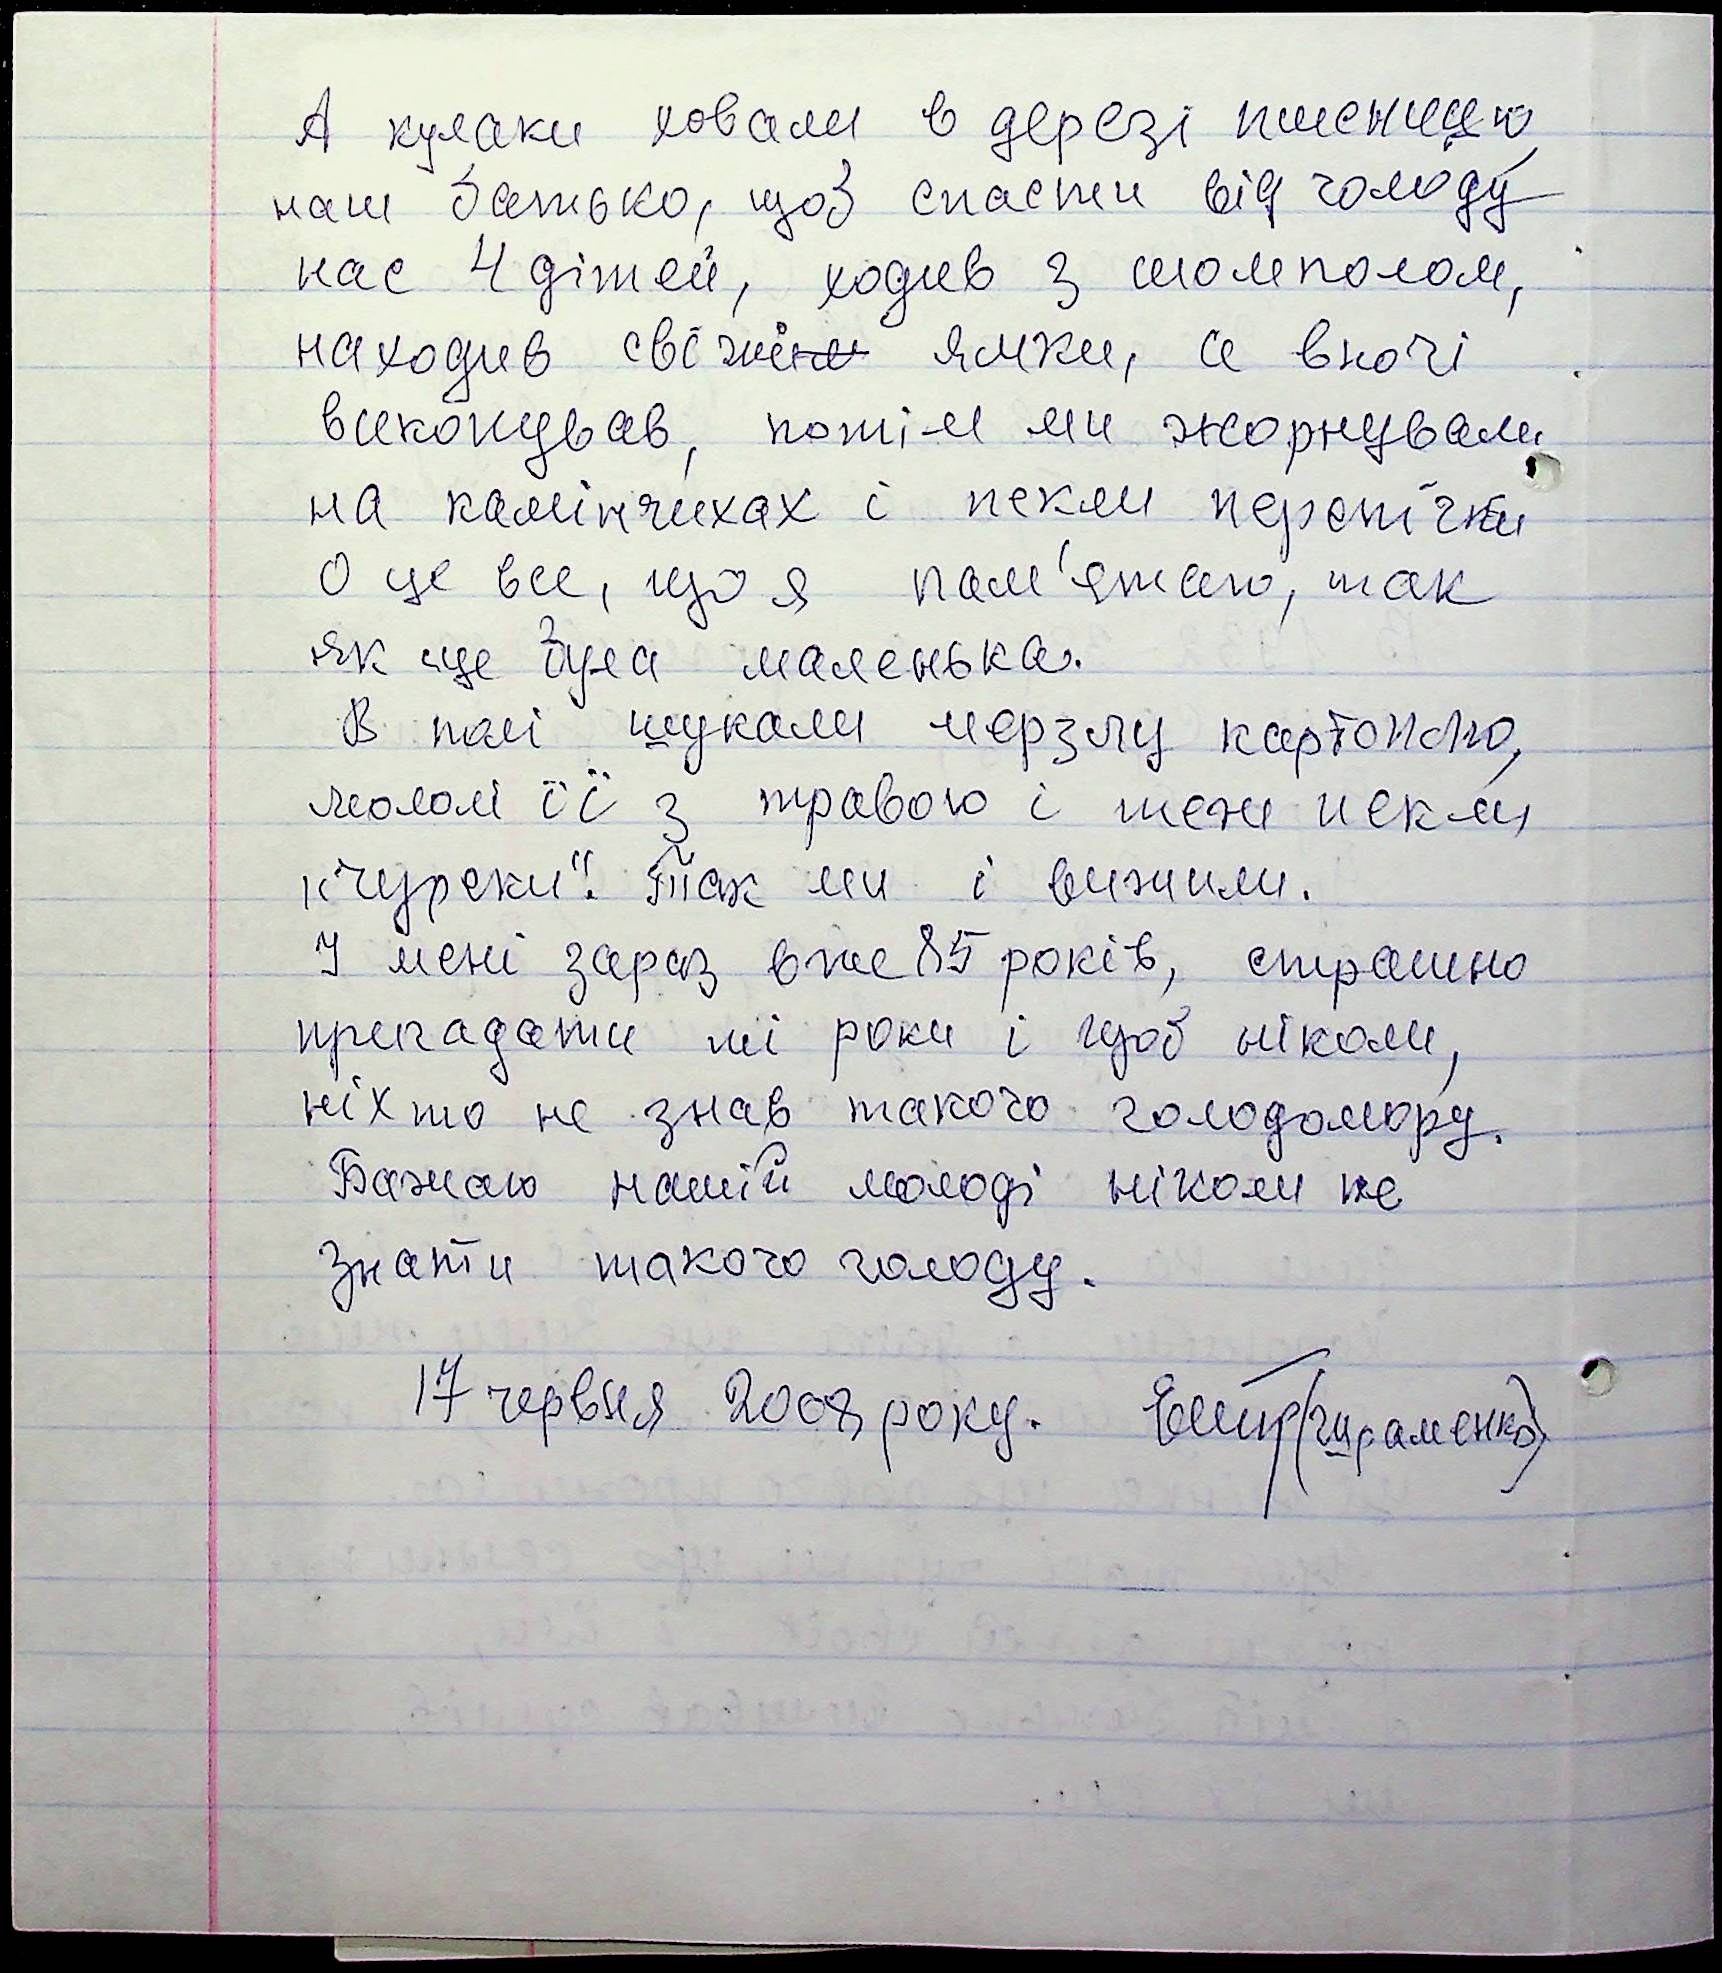 А кулаки ховали в дерезі пшеницю,
наш батько, щоб спасти від голоду
нас 4 дітей, ходив з шомполом,
находив свіжі ямки, а вночі
викопував, потім ми жорнували
на камінчиках і пекли перепічки
О це все, що я пам'ятаю, так
як ще була маленька.
В полі шукали мерзлу картоплю,
мололи її з травою і теж пекли
"чуреки". Так ми і вижили.
І мені зараз вже 85 років, страшно
пригадати ті роки і щоб ніколи,
ніхто не знав такого голодомору.
Бажаю нашій молоді ніколи не
знати такого голоду.
17 червня 2008 року. (Шраменко)